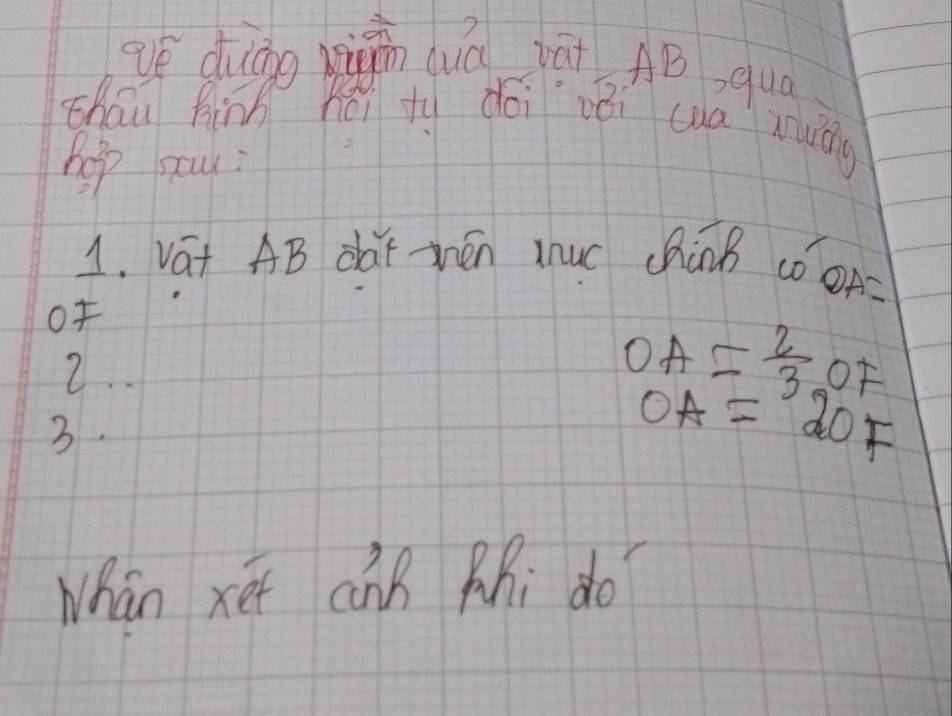 vẽ đường truyền của vật AB, qua
thấu kính hội tụ đối với của trường
hợp sau:
1. Vật AB đặt trên trục chính có OA=
OF
2.. OA = 2/3 OF
3. OA = 2OF
Nhận xét ảnh khi đó